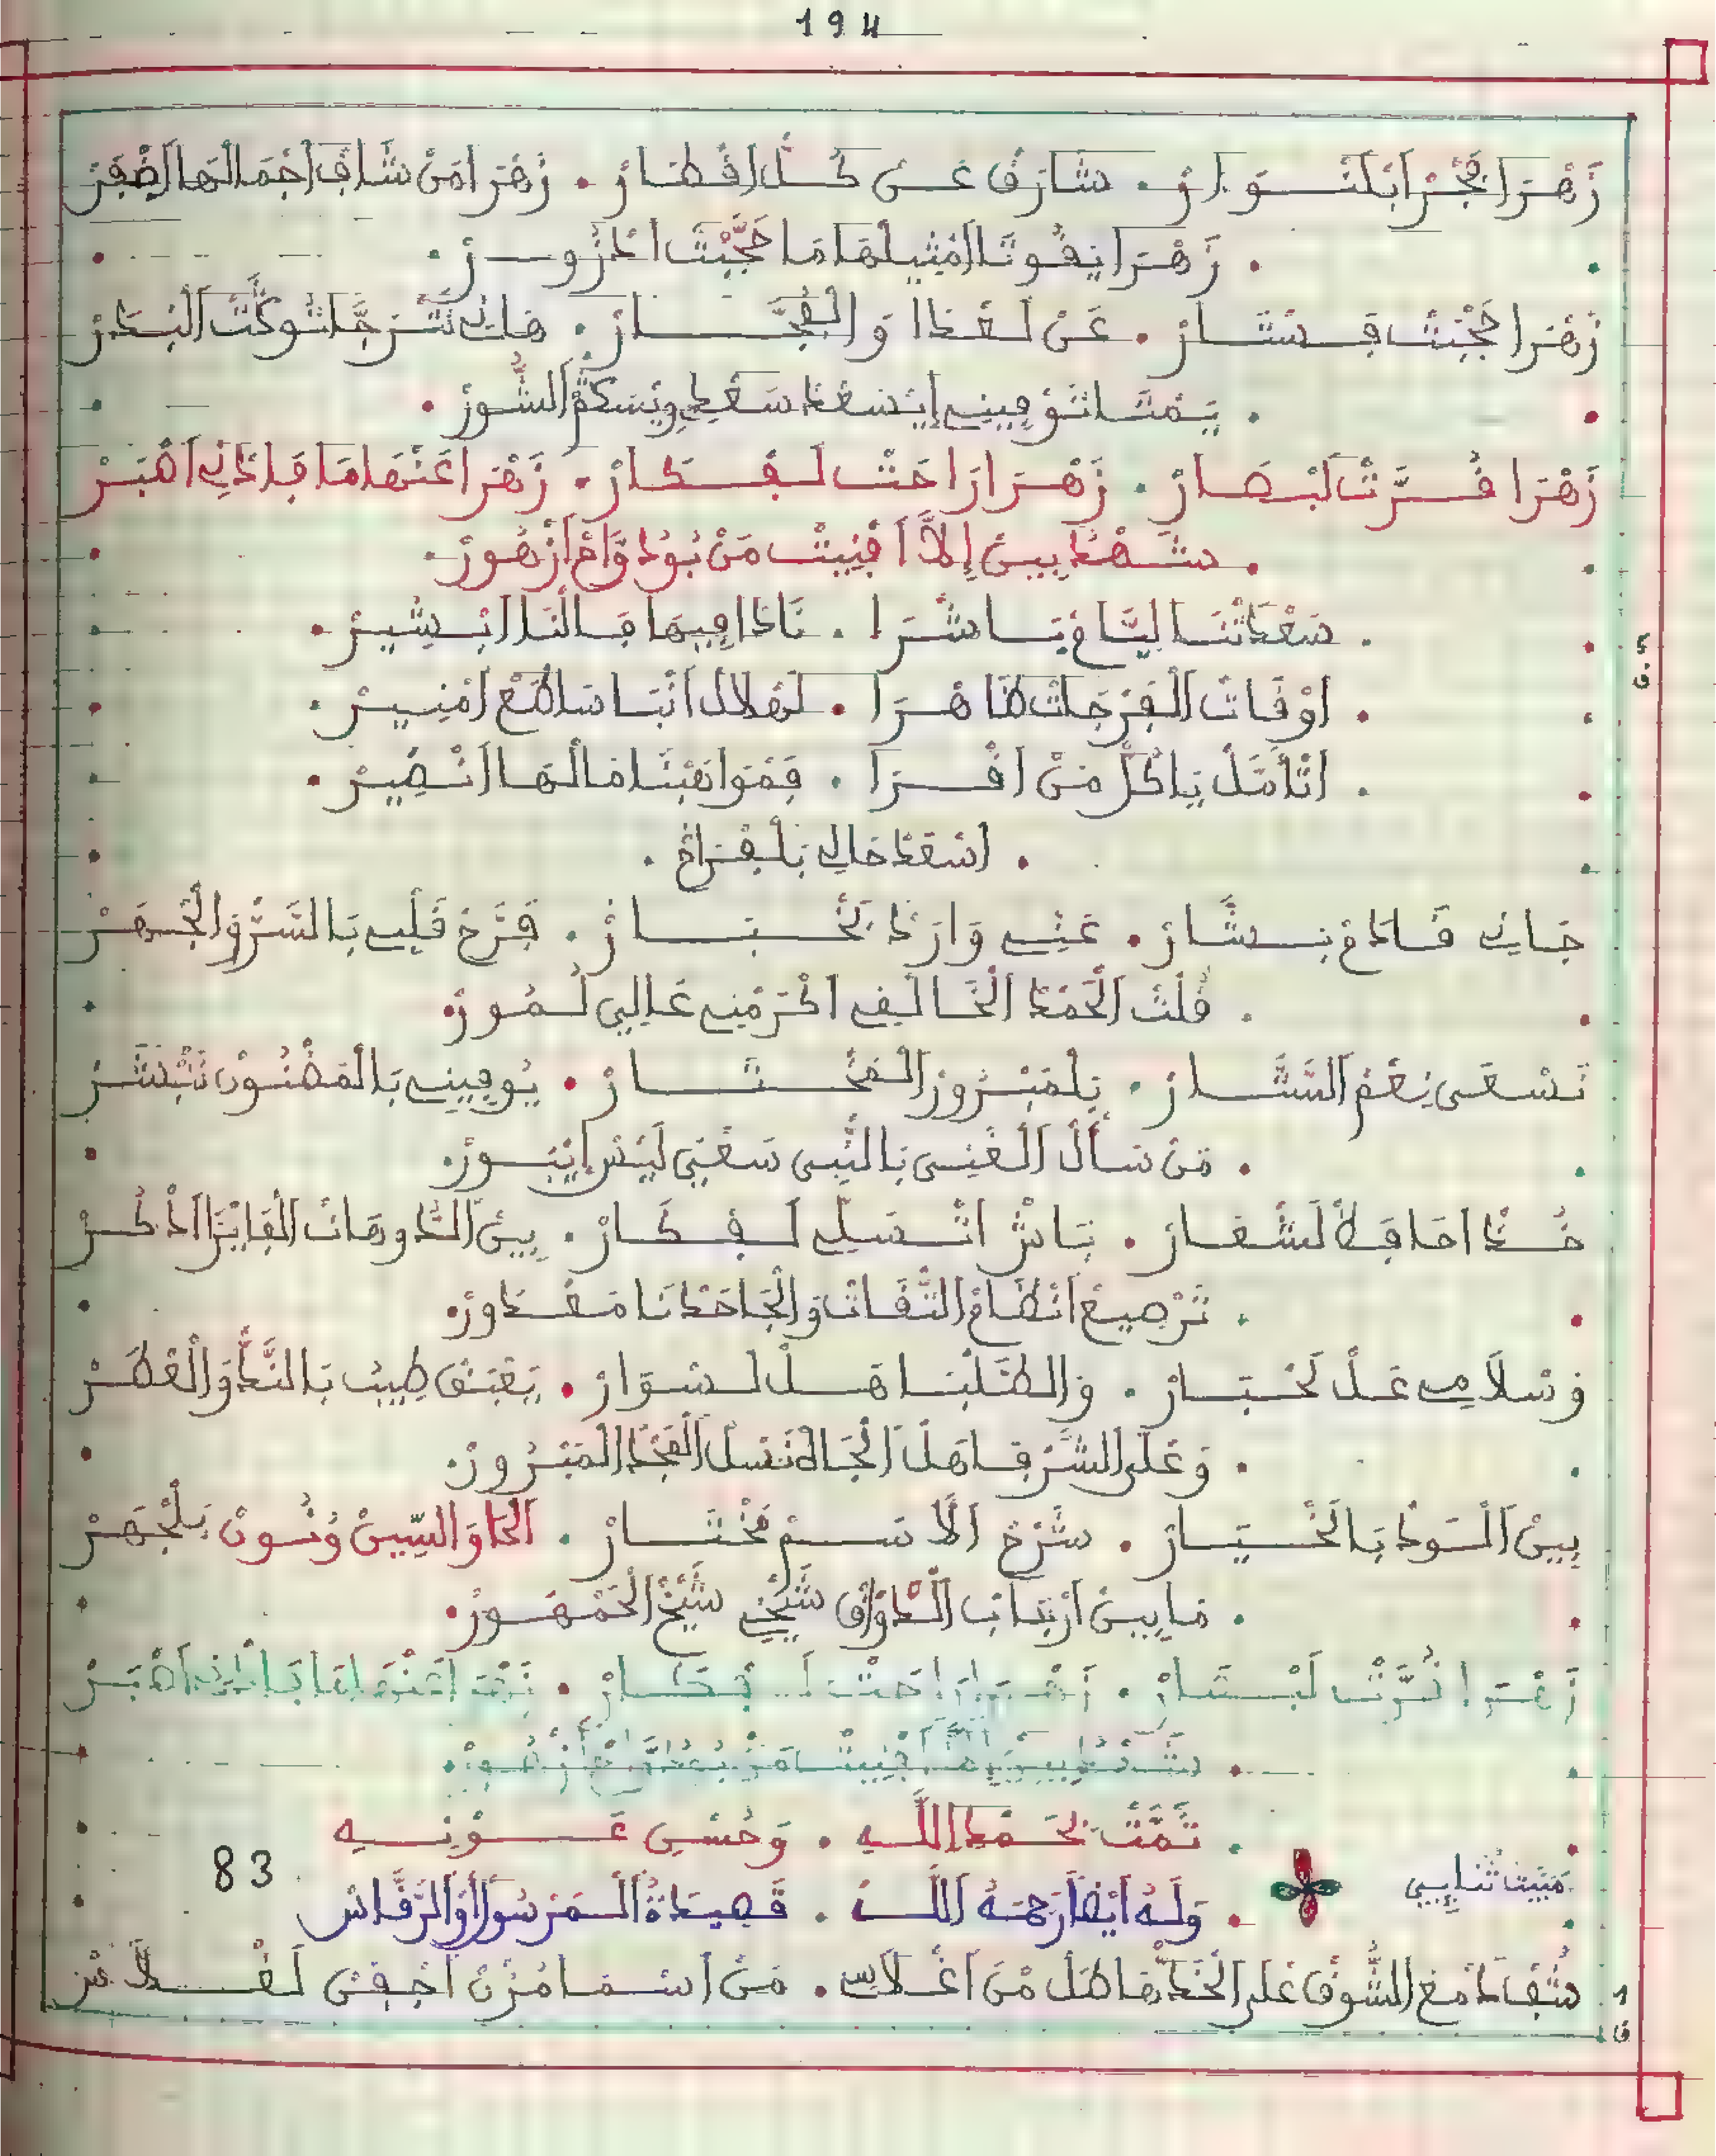 194
زَهْرَا فَجْرْ ابْلَنْوَارْ . شَارَقْ عَنْ كُلّ اقْطَارْ . زَهْرَا مَنْ شَافْ اجْمَالْهَا اضْفَرْ
. زَهْرَا يَاقُوتَا امْثِيلْهَا مَا جَبْتْ ادْرُورْ .
زَهْرَا حَجْبْتْ فَسْتَارْ . عَنْ لَعْدَا وَالْفُجَّارْ . هَانِي نَتْرَجَّا تُوكْتْ الْبْدَرْ
. يَمْتَا تَوْفِينِي ايْسَعْدْ سَعْدِي وِيْسَكَّمْ الشُّورْ .
زَهْرَا قُرَّتْ لَبْصَارْ . زَهْرَا رَاحَتْ لَفْكَارْ . زَهْرَا عَنْهَا مَا قَادْنِي اهْبَرْ
. شَهْدُ بِينَ إِلاَّ افْنِيتْ مَنْ بُودْوَّاحْ ازْهُورْ .
. سَعْدَتْنَا لِيَّاعْ يَا شْرَا . نَادَا فِيهَا فَالْنَا ابْشِيرْ .
5 ق
. اوْقَاتْ الْفَرْجَاتْ ظَاهْرَا . لَهْلَالْ انْبَا سَاطَعْ امْنِيرْ .
. اتْأَمَّلْ يَا كُلّ مَنْ اقْرَا . فَمْوَاهَبْنَا مَا لْهَا انْضِيرْ .
. اسْعَدْ حَالِي بَلْفْرَاحْ .
جَانِي قَادَمْ بَشَّارْ . عَنِّي وَارَدْ بَخْبَارْ . فَرَّحْ قَلْبِي بَالسَّرّ وَالْجْهَرْ
. قُلْتْ الْحَمْدْ الْخَالْقِي اكْرَمْنِي عَالِي لُمُورْ .
نَسْعَى نِعْمَ السَّتَّارْ . بِلْمَبْرُورْ الْمُخْتَارْ . يُوفِينِي بَالْمَضْنُونْ نَبْشَرْ
. مَنْ سَأَلْ الْغَنِي بَالنَّبِي سَعْيِي لَيْسْ ايْبُورْ .
خُدْ احَافَظْ لَشْعَارْ . بَاشْ اتْسَلِّي لَفْكَارْ . بِينْ الدُّوهَاتْ الْفَايْزَا ادْكَرْ
. تَرْصِيعْ انْظَامْ الثّقَاتْ وَالْجَاحَدْنَا مَغْدُورْ .
وَسْلاَمِي عَلْ لَخْيَارْ . وَالطَّلْبَا هَلْ لَسْوَارْ . يَعْبَقْ طِيبْ بَالنَّدّ وَالْعْطَرْ
. وَعْلَى الشُّرْفَا هَلْ الْجَاهْ نَسْلْ الْمَجْدْ الْمَبْرُورْ .
بِينْ الْسْوَدْ بَالْخْيَارْ . شَرْحْ الاَّسَمْ مُخْتَارْ . الْحَا وَالسِّينْ وُنُونْ بَلْجْهَرْ
. مَا بِينْ ارْبَابْ الْدْوَاقْ شَيْخِي شَيْخْ الْجَمْهُورْ .
زَهْرَا قُرَّتْ لَبْصَارْ . زَهْرَا رَاحَتْ لَفْكَارْ . زَهْرَا عَنْهَا مَا قَادْنِي اهْبَرْ
. شَهْدُ بِينَ إِلاَّ افْنِيتْ مَنْ بُودْوَّاحْ ازْهُورْ .
. تَمَّتْ بحَمْدِ اللَّهِ . وَحُسْنِ عَوْنِهِ
83
مَبَيْتْ ثْنَايِي
. وَلَهُ أَيْضًا رَحِمَهُ اللَّهُ . قَصِيدَةُ الْمَرْسُولْ أَوْ الرَّقَّاسْ
1 ق
شُفْ ادْمَعْ الشُّوقْ عْلَى الْخَدّ هَاطَلْ مْنَ اغْلاَسِي . مَنْ اسْمَا مُزْنْ اجْفَنْ لَغْلاَسْ